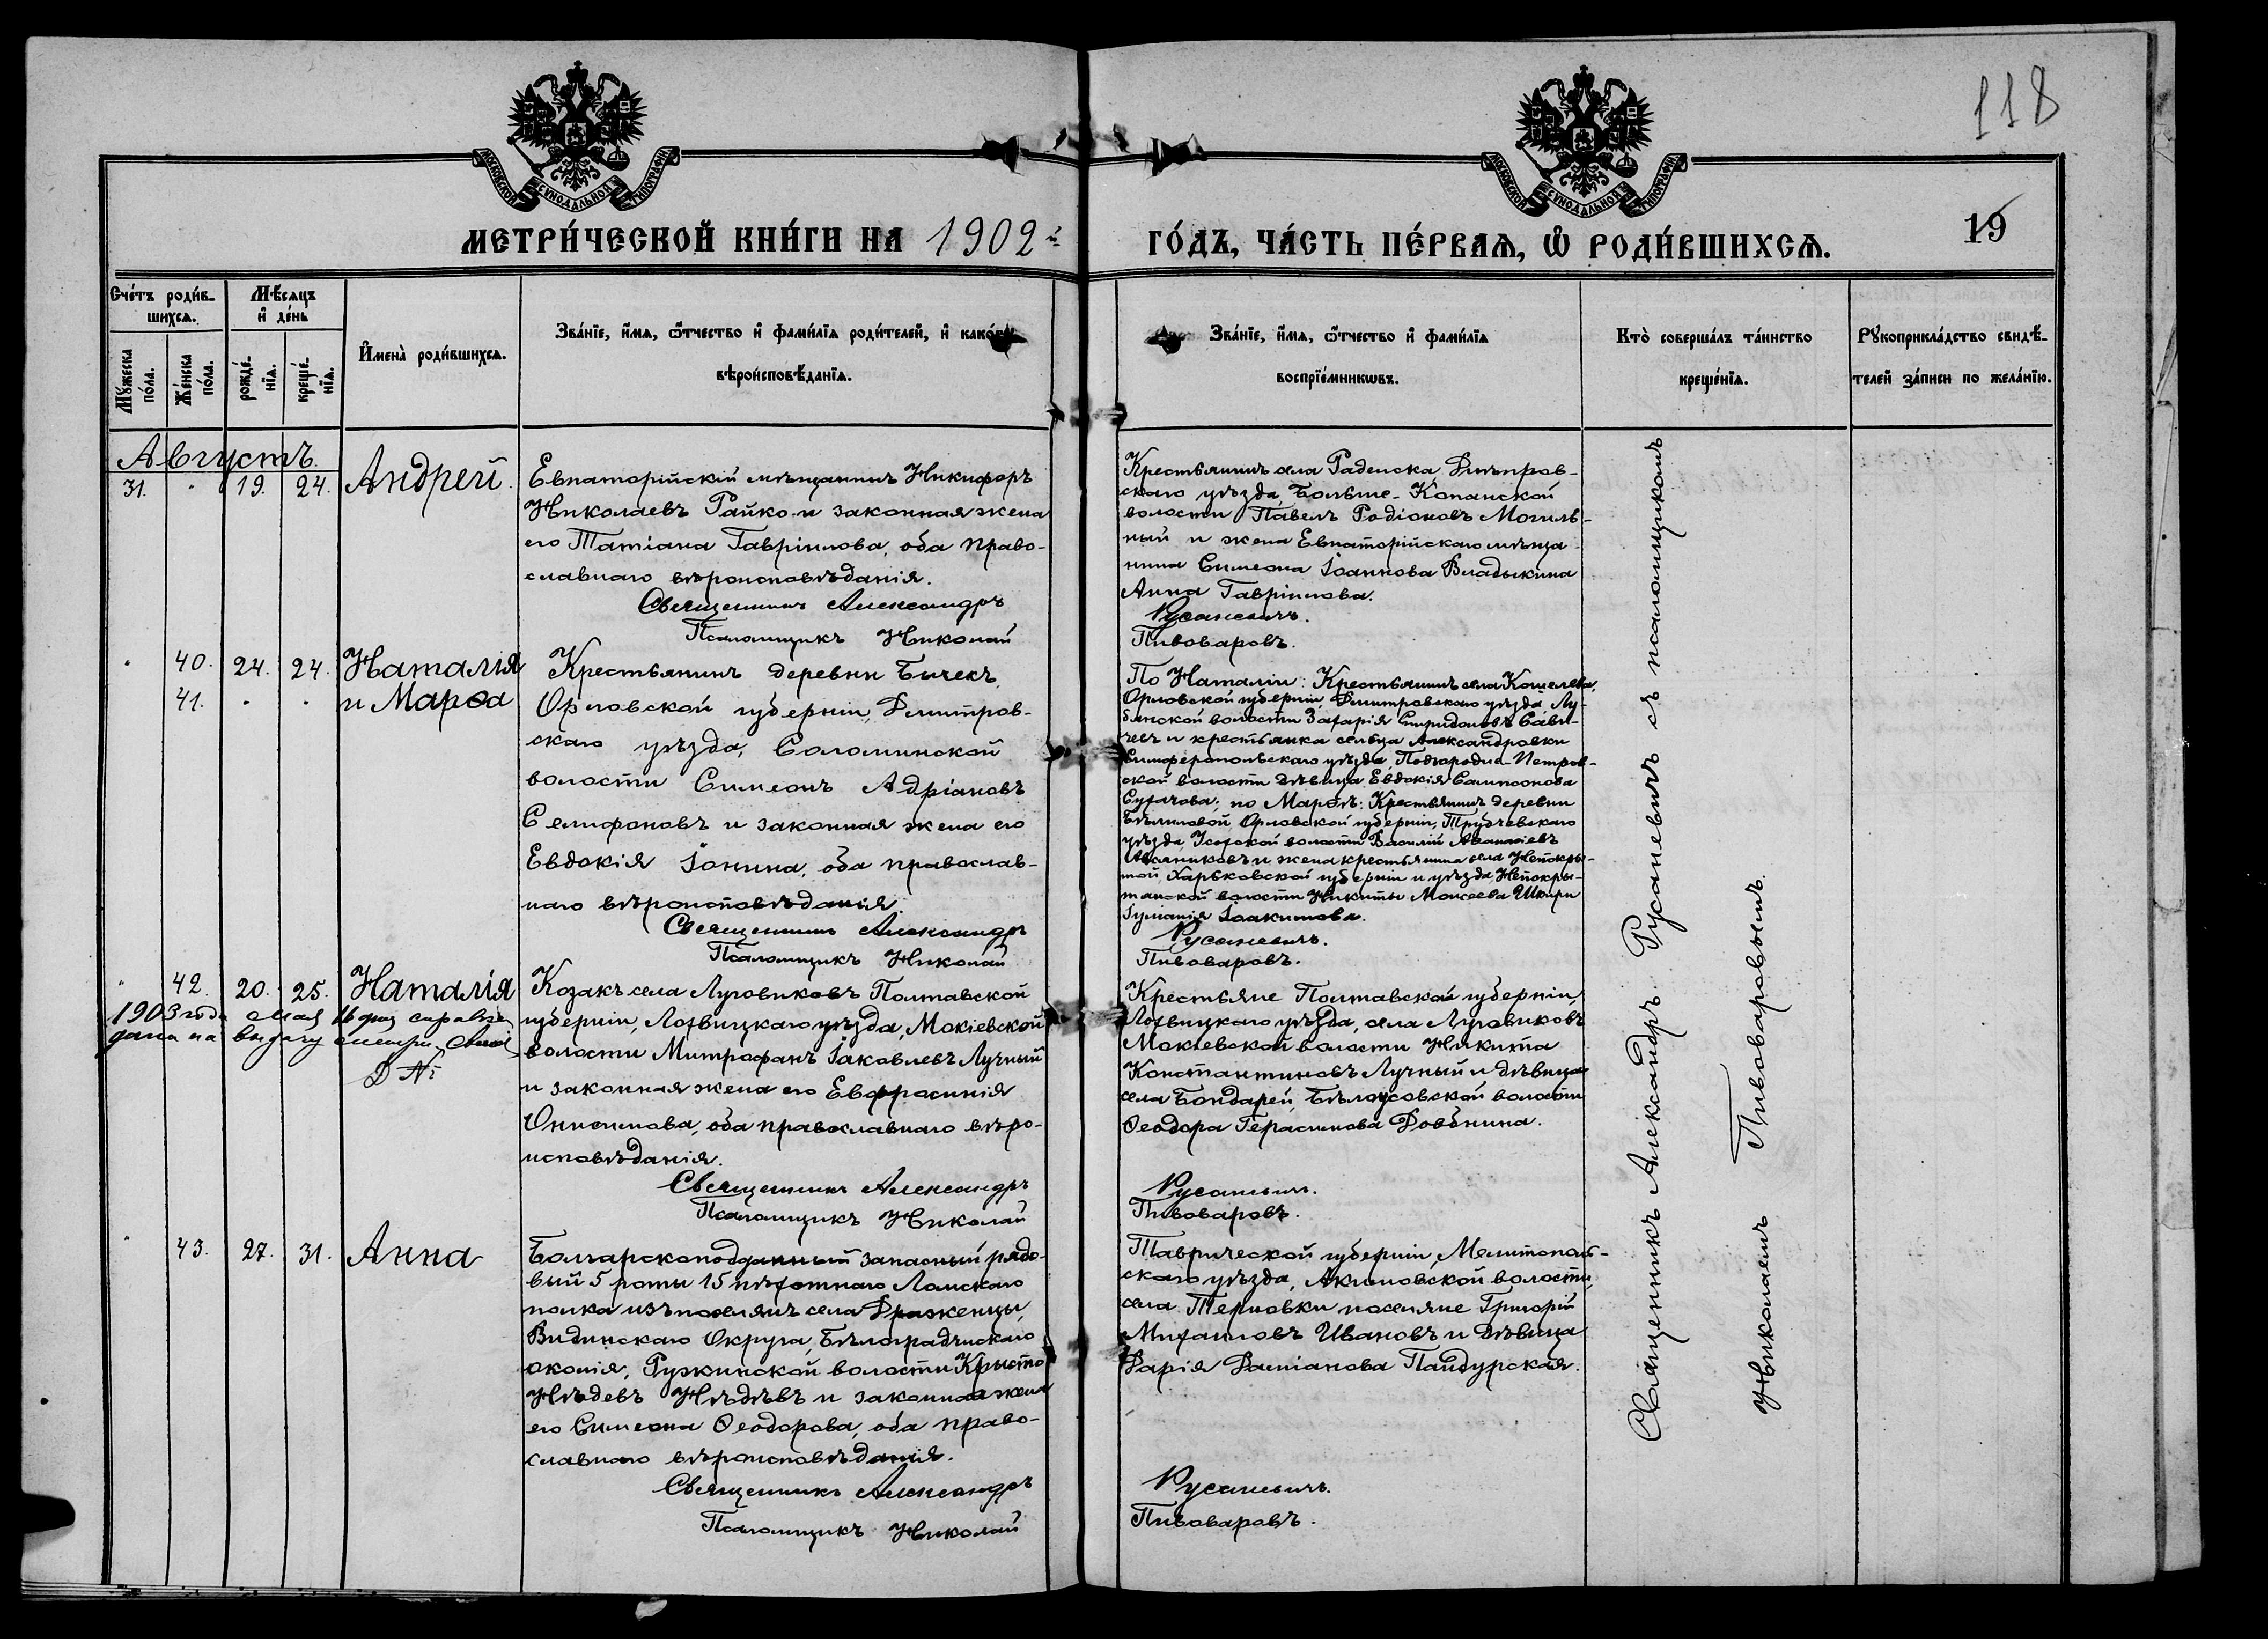 118
МОСКОВСКОЙ СѴНОДАЛЬНОЙ ТИПОГРАФІИ
МОСКОВСКОЙ СѴНОДАЛЬНОЙ ТИПОГРАФІИ
МЕТРИ́ЧЕСКОЙ КНИ́ГИ НА 1902й ГО́ДЪ, ЧА́СТЬ ПЕ́РВАѦ, Ѿ РОДИ́ВШИХСѦ.
19
Счéтъ роди́в-
шихсѧ.
Мѣ́сѧцъ
и҆ де́нь
Мꙋ́жеска
по́ла.
Же́нска
по́ла.
рожде́-
нїѧ.
креще́-
нїѧ.
И҆мена̀ роди́вшихсѧ.
Зва́нїе, и҆́мѧ, ѻ҆́тчество и҆ фами́лїѧ роди́телей, и҆ како́гѡ
вѣроисповѣ́данїѧ.
Зва́нїе, и҆́мѧ, ѻ҆́тчество и҆ фами́лїѧ
воспрїе́мникѡвъ.
Кто̀ соверша́лъ та́инство
креще́нїѧ.
Рꙋкоприкла́дство свидѣ́-
телей за́писи по жела́нїю.
Августъ.
31. " 19. 24. Андрей.
Евпаторійскій мѣщанинъ Никифоръ
Николаевъ Райко и законная жена
его Татіана Гавріилова, оба право-
славнаго вѣроисповѣданія.
Священникъ Александръ
Псаломщикъ Николай
Крестьянинъ села Раденска, Днѣпров-
скаго уѣзда, Больше-Копанской
волости Павелъ Родіоновъ Могиль-
ный и жена Евпаторійскаго мѣща-
нина Симеона Іоаннова Владыкина
Анна Гавріилова.
Русаневичъ.
Пивоваровъ.
" 40. 24. 24. Наталія
41. " " и Марѳа
Крестьянинъ деревни Бычекъ,
Орловской губерніи, Дмитров-
скаго уѣзда, Соломинской
волости Симеонъ Адріановъ
Селифоновъ и законная жена его
Евдокія Іонина, оба православ-
наго вѣроисповѣданія.
Священникъ Александръ
Псаломщикъ Николай
По Наталіи: Крестьянинъ села Кошелева,
Орловской губерніи, Дмитровскаго уѣзда, Лу-
бянской волости Захарія Спиридоновъ Сави-
чевъ и крестьянка сельца Александровки
Симферопольскаго уѣзда, Подгородне-Петров-
ской волости дѣвица Евдокія Сампсонова
Сугачова; по Марѳѣ: Крестьянинъ деревни
Орловской губерніи, Трубчевскаго
уѣзда волости Василій Аѳанасіевъ
Овсянниковъ и жена крестьянина села Непокры-
той, Харьковской губерніи и уѣзда, Непокры-
танской волости Никиты Моисеева Шкири
Гуліанія Іоакимова.
Русаневичъ.
Пивоваровъ.
" 42. 20. 25. Наталія
1903 года мая 16 дня справка
дана на выдачу метри.
Козакъ села Луговиковъ Полтавской
губерніи, Лохвицкаго уѣзда, Мокіевской
волости Митрофанъ Іаковлевъ Лучный
и законная жена его Евфросинія
Онисимова, оба православнаго вѣро-
исповѣданія.
Священникъ Александръ
Псаломщикъ Николай
Крестьяне Полтавской губерніи,
Лохвицкаго уѣзда, села Луговиковъ
Мокіевской волости Никита
Константиновъ Лучный и дѣвица
села Бондарей, Бѣлоусовской волости
Ѳеодора Герасимова Довбнина.
Русаневичъ.
Пивоваровъ.
" 43. 27. 31. Анна
Болгарскоподданный запасный рядо-
вый 5 роты 15 пѣхотнаго Ломскаго
полка изъ поселянъ села Драженцы,
Видинскаго Округа, Бѣлоградчискаго
околія, Ружинской волости Крысто
Нѣдевъ Нѣдѣвъ и законная жена
его Симеона Ѳеодорова, оба право-
славнаго вѣроисповѣданія.
Священникъ Александръ
Псаломщикъ Николай
Таврической губерніи, Мелитополь-
скаго уѣзда, Акимовской волости,
села Терновки поселяне Григорій
Михаиловъ Ивановъ и дѣвица
Дарія Даміанова Пандурская.
Русаневичъ.
Пивоваровъ.
Священникъ Александръ Русаневичъ съ псаломщикомъ
Николаемъ Пивоваровымъ.